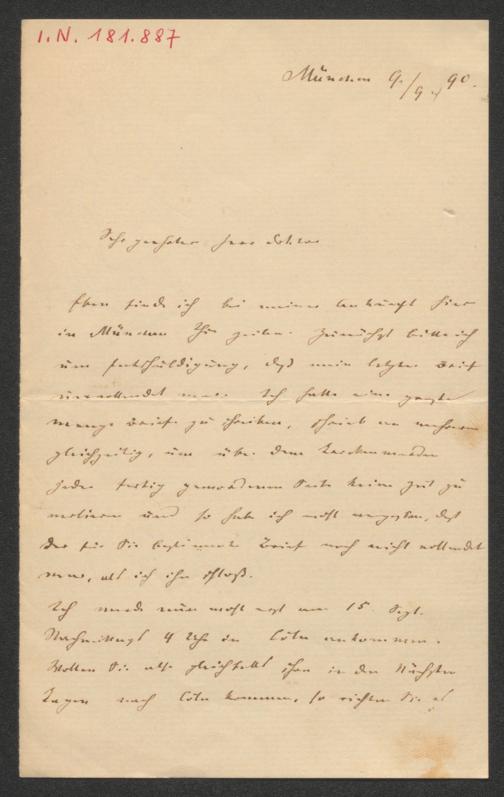 I.N. 181.887
München 9./9. 90.
Sehr geehrter Herr Doktor
Eben finde ich bei meiner Ankunft hier
in München Ihre Zeilen. Zunächst bitte ich
um Entschuldigung, daß mein letzter Brief
unvollendet war. Ich hatte eine ganze
Menge Briefe zu schreiben, schrieb an mehreren
gleichzeitig, um über dem Trocknenwerden
jeder fertig gewordenen Seite keine Zeit zu
verlieren und so habe ich wohl vergessen, daß
der für Sie bestimmte Brief noch nicht vollendet
war, als ich ihn schloß.
Ich werde nun wohl erst am 15. Sept.
Nachmittags 4 Uhr in Cöln ankommen.
Wollen Sie also gleichfalls schon in den nächsten
Tagen nach Cöln kommen, so richten Sie es